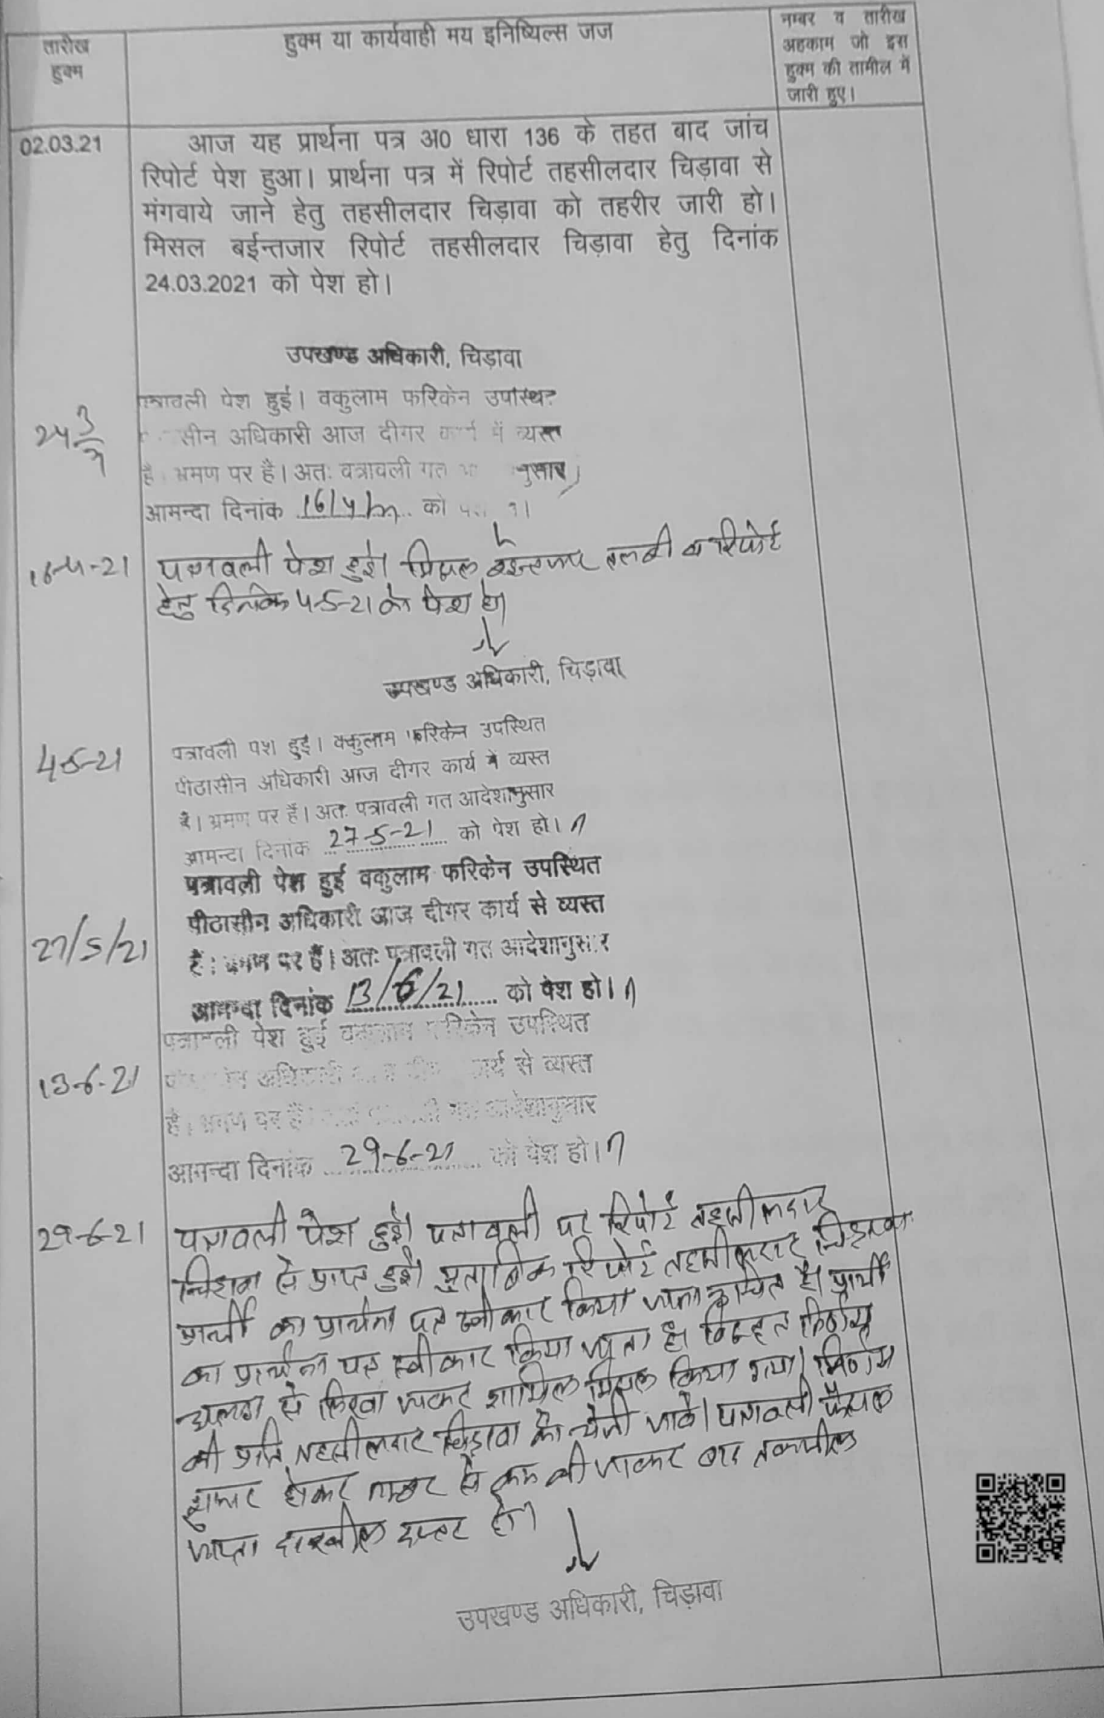 तारीख
हुक्म
हुक्म या कार्यवाही मय इनिष्यिल्स जज
नम्बर व तारीख
अहकाम जो इस
हुक्म की तामील में
जारी हुए।
02.03.21
आज यह प्रार्थना पत्र अ0 धारा 136 के तहत बाद जांच
रिपोर्ट पेश हुआ। प्रार्थना पत्र में रिपोर्ट तहसीलदार चिड़ावा से
मंगवाये जाने हेतु तहसीलदार चिड़ावा को तहरीर जारी हो।
मिसल बईन्तजार रिपोर्ट तहसीलदार चिड़ावा हेतु दिनांक
24.03.2021 को पेश हो।
उपखण्ड अधिकारी, चिड़ावा
पत्रावली पेश हुई। वकुलाम फरिकेन उपस्थित
24 3
सीन अधिकारी आज दीगर कार्य में व्यस्त
है। भ्रमण पर हैं। अतः पत्रावली गत
आमन्दा दिनांक 16/4/21 को
16-4-21
पत्रावली पेश हुई। मिसल बईन्तजार तलबी व रिपोर्ट
हेतु दिनांक 4-5-21 को पेश हो।
उपखण्ड अधिकारी, चिड़ावा
4-5-21
पत्रावली पेश हुई। वकुलाम फरिकेन उपस्थित
पीठासीन अधिकारी आज दीगर कार्य में व्यस्त
है। भ्रमण पर हैं। अतः पत्रावली गत आदेशानुसार
आमन्दा दिनांक 27-5-21 को पेश हो।
27/5/21
पत्रावली पेश हुई वकुलाम फरिकेन उपस्थित
पीठासीन अधिकारी आज दीगर कार्य से व्यस्त
है। भ्रमण पर हैं। अतः पत्रावली गत आदेशानुसार
आमन्दा दिनांक 13/6/21 को पेश हो।
13-6-21
पत्रावली पेश हुई वकुलाम फरिकेन उपस्थित
अधिकारी कार्य से व्यस्त
है। भ्रमण पर हैं। गत आदेशानुसार
आमन्दा दिनांक 29-6-21 को पेश हो।
29-6-21
पत्रावली पेश हुई। पत्रावली पर रिपोर्ट तहसीलदार
चिडावा से प्राप्त हुई। मुताबिक रिपोर्ट तहसीलदार चिडावा
प्रार्थी का प्रार्थना पत्र स्वीकार किया जाना उचित है। प्रार्थी
का प्रार्थना पत्र स्वीकार किया जाता है। विस्तृत निर्णय
अलग से लिखा जाकर शामिल मिसल किया गया। निर्णय
की प्रति तहसीलदार चिड़ावा को भेजी जावे। पत्रावली फैसल
शुमार होकर नम्बर से कम की जाकर बाद तकमील
जाप्ता दाखील दफ्तर हो।
उपखण्ड अधिकारी, चिड़ावा